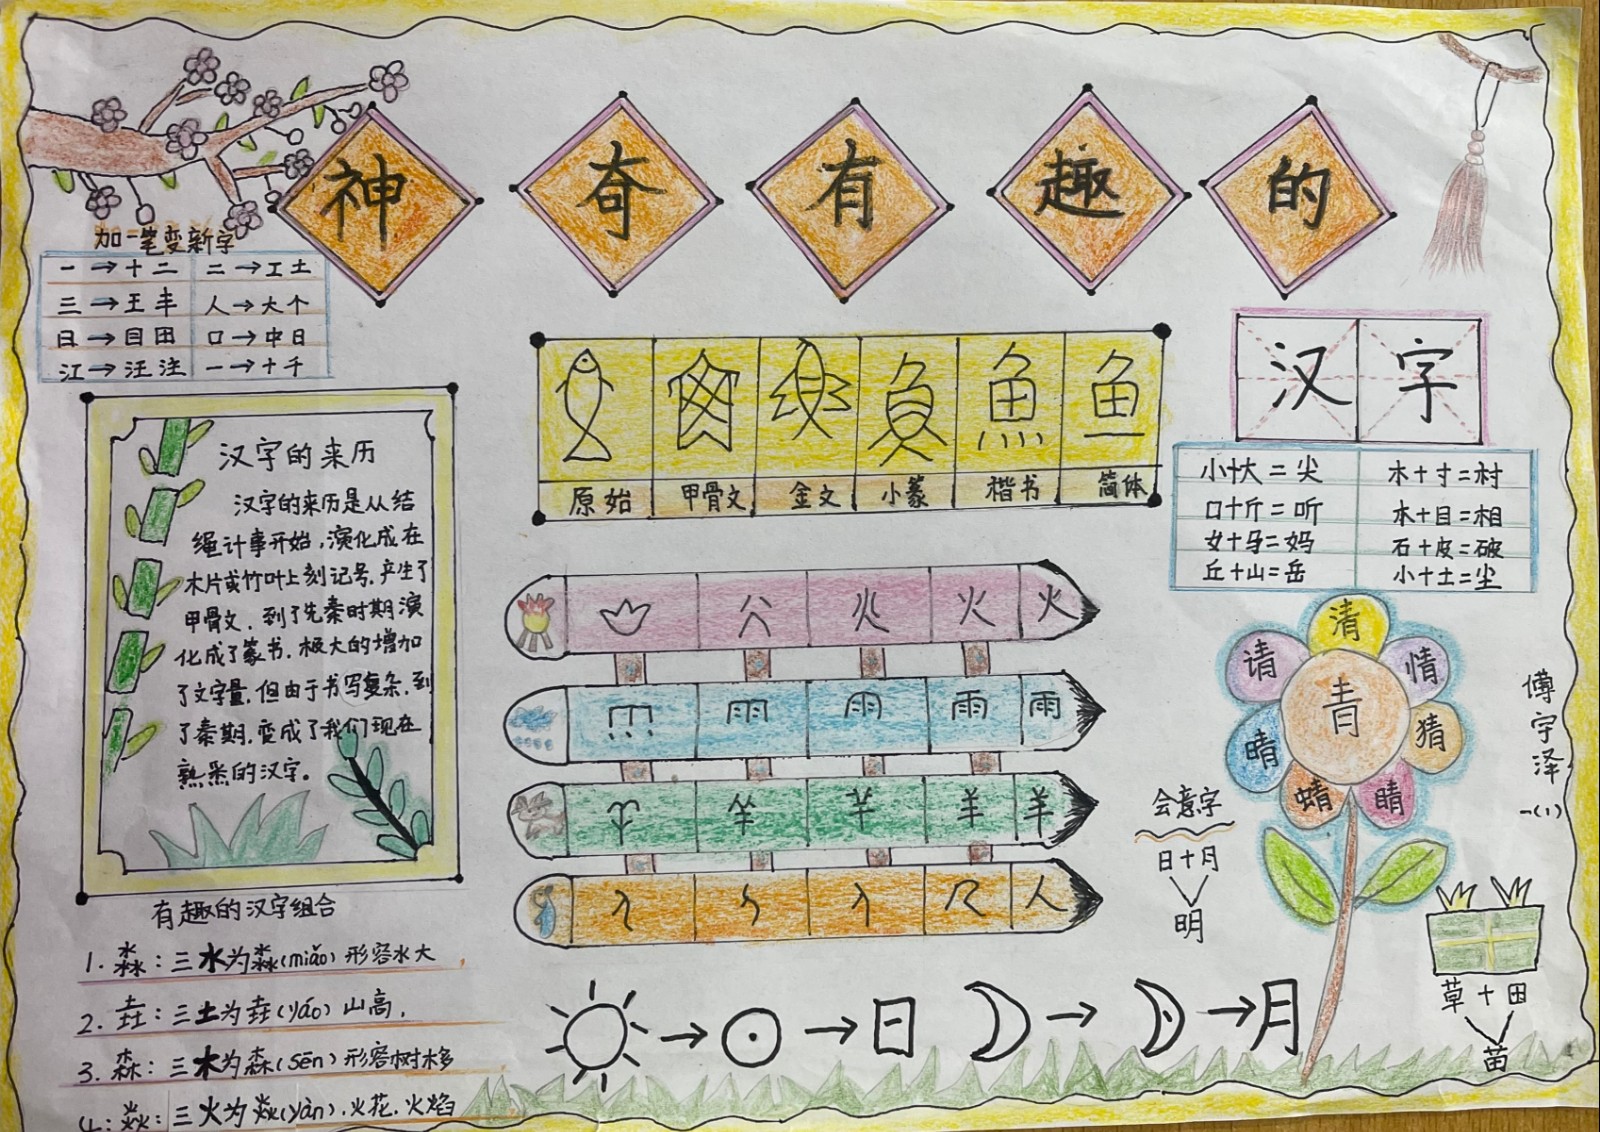 神奇有趣的
汉字
加一笔变新字
一→十二 二→工土
三→王丰 人→大个
日→目田 口→中日
江→汪注 一→十千
汉字的来历
汉字的来历是从结
绳计事开始,演化成在
木片或竹叶上刻记号,产生了
甲骨文,到了先秦时期演
化成了篆书,极大的增加
了文字量,但由于书写复杂,到
了秦期,变成了我们现在
熟悉的汉字。
有趣的汉字组合
1.淼:三水为淼(miǎo)形容水大
2.垚:三土为垚(yáo)山高,
3.森:三木为森(sēn)形容树木多
4:焱:三火为焱(yàn),火花,火焰
鱼 魚 鱼
原始 甲骨文 金文 小篆 楷书 简体
火 火
雨 雨 雨
羊 羊
人
日 月
小+大=尖 木+寸=村
口+斤=听 木+目=相
女+马=妈 石+皮=破
丘+山=岳 小+土=尘
清
请 情
青
晴 猜
蜻 睛
会意字
日+月
明
草+田
苗
傅宇泽
一(1)